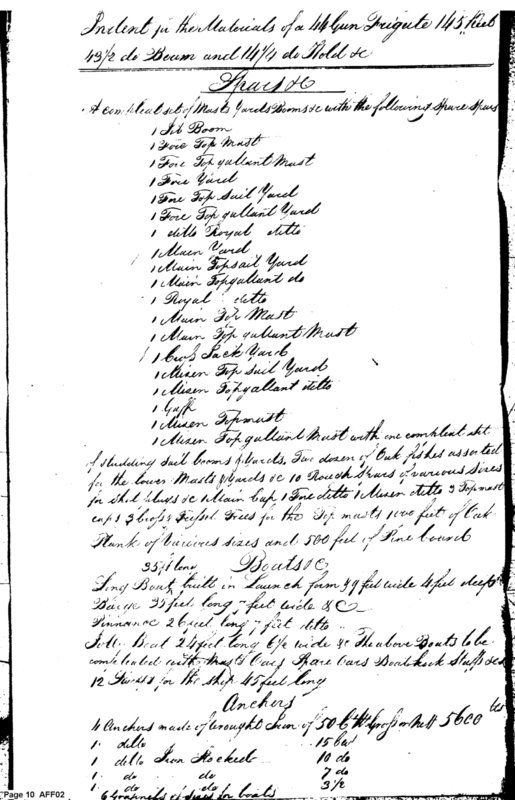 Indent for the Materials of a 44 Gun Frigate 145 feet
43 1/2 do Beam and 14 1/4 do Hold &c
Spars &c
A compleat set of Masts Yards Booms &c with the following Spare Spars
1 Jib Boom
1 Fore Top Mast
1 Fore Top gallant Mast
1 Fore Yard
1 Fore Top sail Yard
1 Fore Top gallant Yard
1 ditto Royal ditto
1 Main Yard
1 Main Topsail Yard
1 Main Topgallant do
1 Royal ditto
1 Main Top Mast
1 Main Top gallant Mast
1 Cross Jack Yard
1 Mizen Top sail Yard
1 Mizen Topgallant ditto
1 Gaff
1 Mizen Topmast
1 Mizen Top gallant Mast with one compleat set
of studding sail booms & Yards. Two dozen of Oak fishes assorted
for the lower Masts & Yards &c 10 Rough Spars of various sizes
for &c 1 Main Cap 1 Fore ditto 1 Mizen ditto 3 Topmast
caps 3 Cross & Tressel Trees for the Top masts 1000 feet of Oak
Plank of Various sizes and 500 feet of Pine board
35 feet long Boats &c
Long Boat, built in Launch form & 9 feet wide 4 feet deep
Barge 35 feet long 7 feet wide &c
Pinnance 26 feet long 7 feet ditto
Jolly Boat 24 feet long 6 1/2 wide &c The above Boats to be
compleated with Masts Oars Spare Oars Boat hook Staffs &c
12 for the ship 45 feet long
Anchers
4 Anchers made of Wrought Iron of 50 Ct Gross or Nett 5600 lbs
1 ditto 15 Cwt
1 ditto Iron Stocked 10 do
1 do do 7 do
1 do do 3 1/2
6 Grapnels of sizes for boats
Page 10 AFF02